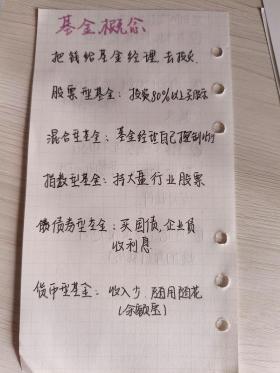 基金概念
把钱给基金经理去投
股票型基金：投资80%以上股票
混合型基金：基金经理自己控制
指数型基金：持大盘行业股票
债券型基金：买国债、企业负
收利息
货币型基金：收入少，随用随花
(余额宝)